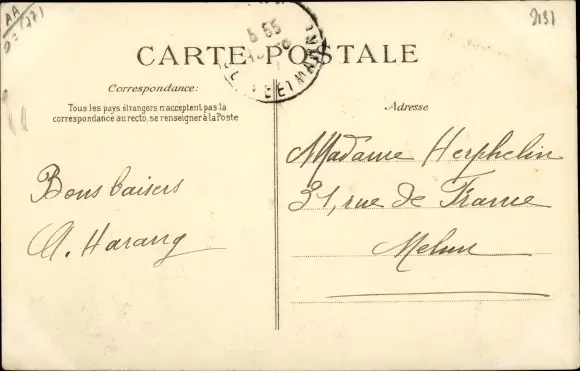 AA
2131
CARTE POSTALE
Correspondance:
Tous les pays étrangers n'acceptent pas la
correspondance au recto, se renseigner à la Poste
Adresse
Bons baisers
A. Harang
Madame Herphelin
31, rue de France
Melun